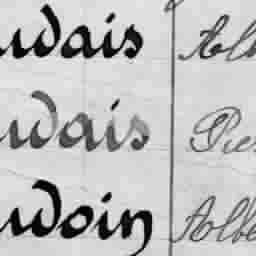 udais Alb
udais Pie
udoin Albe